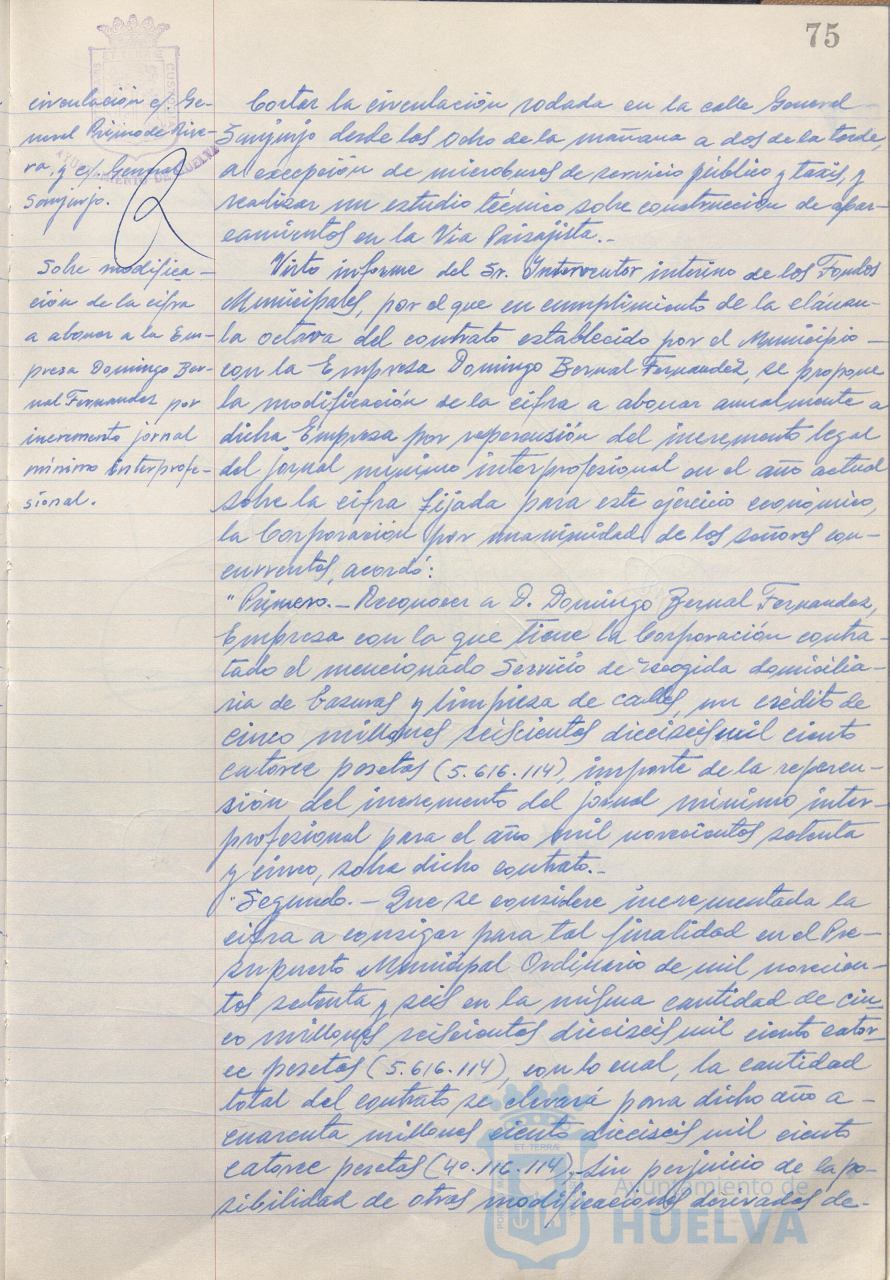 75
circulación c/. Ge-
neral Primo de Rive-
ra, y c/. General
Sanjurjo.
Cortar la circulación rodada en la calle General
Sanjurjo desde las ocho de la mañana a dos de la tarde,
a excepción de microbuses de servicio público y taxis, y
realizar un estudio técnico sobre construcción de apar-
camientos en la Vía Paisajista.-
Sobre modifica-
ción de la cifra
a abonar a la Em-
presa Domingo Ber-
nal Fernandez por
incremento jornal
mínimo interprofe-
sional.
Visto informe del Sr. Interventor interino de los Fondos
Municipales, por el que en cumplimiento de la cláusu-
la octava del contrato establecido por el Municipio-
con la Empresa Domingo Bernal Fernandez, se propone
la modificación de la cifra a abonar anualmente a
dicha Empresa por repercusión del incremento legal
del jornal mínimo interprofesional en el año actual
sobre la cifra fijada para este ejercicio económico,
la Corporación por unanimidad de los señores con-
currentes, acordó:
"Primero.- Reconocer a D. Domingo Bernal Fernandez,
Empresa con la que tiene la Corporación contra-
tado el mencionado Servicio de recogida domicilia-
ria de basuras y limpieza de calles, un crédito de
cinco millones seiscientos dieciseis mil ciento
catorce pesetas (5.616.114), importe de la repercu-
sion del incremento del jornal mínimo inter-
profesional para el año mil novecientos setenta
y cinco, sobre dicho contrato.-
"Segundo.- Que se considere incrementada la
cifra a consigar para tal finalidad en el Pre-
supuesto Municipal Ordinario de mil novecien-
tos setenta y seis en la misma cantidad de cin-
co millones seiscientos dieciseis mil ciento cator-
ce pesetas (5.616.114), con lo cual, la cantidad
total del contrato se elevará para dicho año a-
cuarenta millones ciento dieciseis mil ciento
catorce pesetas (40.116.114), sin perjuicio de la po-
sibilidad de otras modificaciones derivadas de-
Ayuntamiento de
HUELVA